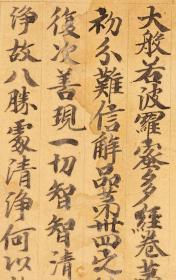 大般若波羅蜜多經卷苐
初分難信解品苐卅四之
復次善現一切智智清
淨故八勝處清淨何以